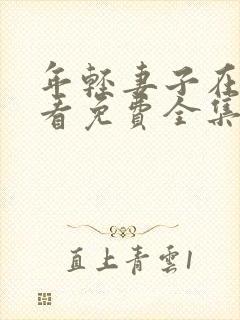 年轻妻子在
看免費全集
直上青雲1